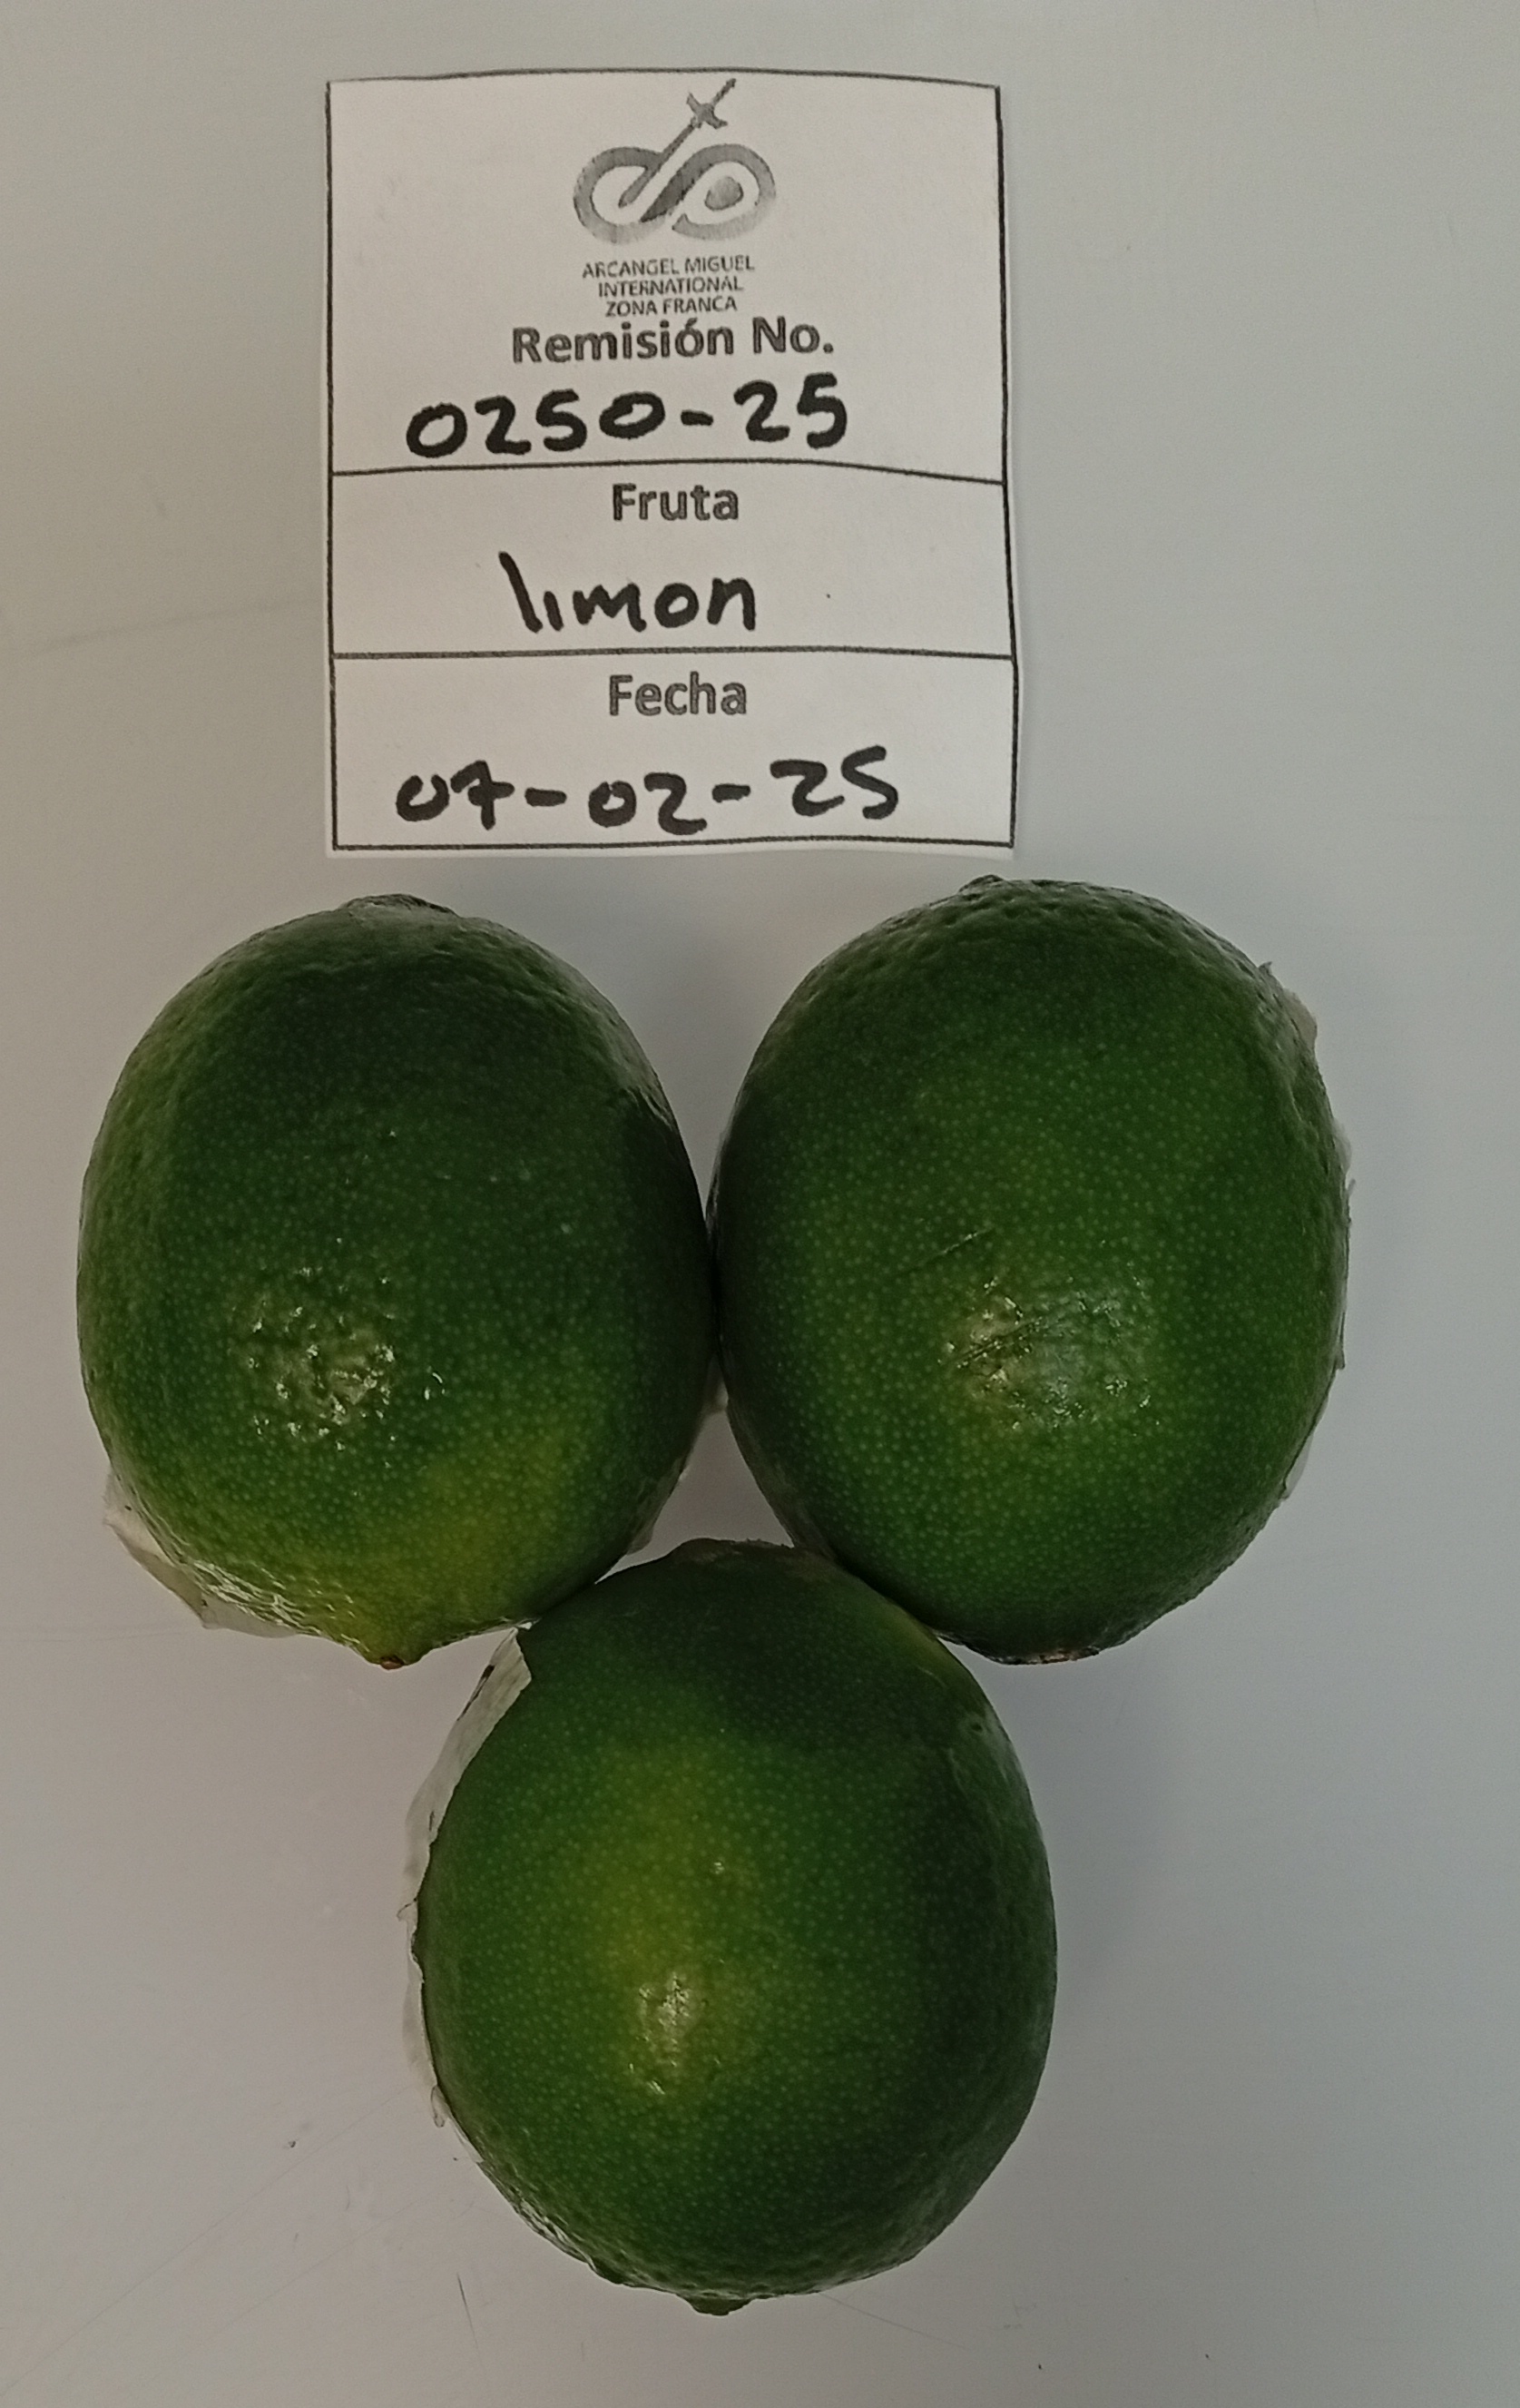 ARCANGEL MIGUEL
INTERNATIONAL
ZONA FRANCA
Remisión No.
0250-25
Fruta
limon
Fecha
07-02-25